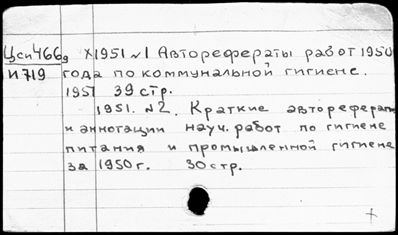 Цсп466g х1951 №1 Авторефераты работ 1950
И719 года по коммунальной гигиене.
1951 39 стр.
1951. №2. Краткие авторефераты
и аннотации науч. работ по гигиене
питания и промышленной гигиене
за 1950 г. 30 стр.
+